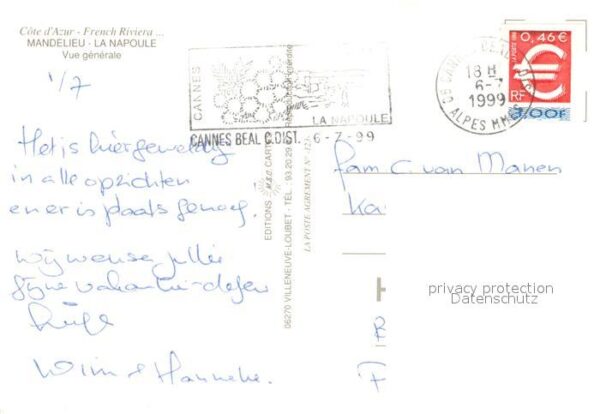 Côte d'Azur - French Riviera ...
MANDELIEU - LA NAPOULE
Vue générale
1/7
Het is hier geweldig
in alle opzichten
en er is plaats genoeg.
Wij wensen jullie
fijne vakantie-dagen
Wim & Hanneke.
EDITIONS M.S.G. CART
06270 VILLENEUVE-LOUBET - TÉL. 93.20.29
LA POSTE AGREMENT N°
CANNES
LA NAPOULE
CANNES BEAL C.DIST. 6-7-99
18 H
6-7
1999
ALPES MMES
0,46 €
LA POSTE 1999
RF
3,00F
Fam C. van Manen
Ka
privacy protection
Datenschutz